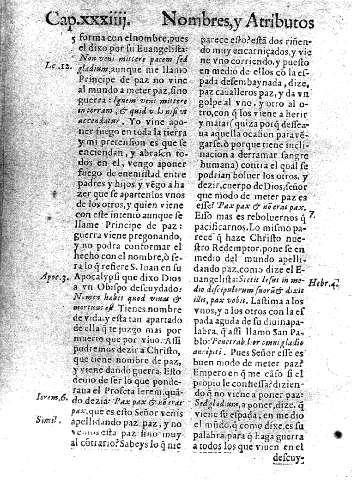 Cap.xxxiiij. Nombres, y Atributos
5 forma con el nombre, pues
el dixo por su Euangelista:
Lc. 12. Non veni mittere pacem sed
gladium, aunque me llamo
Principe de paz no vine
al mundo a meter paz, sino
guerra: Ignem veni mittere
in terram, & quid volo nisi vt
accendatur. Yo vine a po-
ner fuego en toda la tierra
y mi pretension es que se
enciendan, y abrasen to-
dos en el, vengo a poner
fuego de enemistad entre
padres y hijos y vẽgo a ha
zer que se aparten vnos
de los otros, y quien viene
con este intento aunque se
llame Principe de paz:
guerra viene pregonando,
y no podra conformar el
hecho con el nombre, o se-
ra lo q̃ refiere S. Iuan en su
Apoc. 3. Apocalypsi que dixo Dios
a vn Obispo descuydado:
Nomen habes quod viuas &
mortuus es. Tienes nombre
de vida, y esta tan apartado
de ella q̃ te juzgo mas por
muerto que por viuo. Assi
pudremos dezir a Christo,
que tiene nombre de paz,
y viene dando guerra. Esto
deuio de ser lo que ponde-
Ierem. 6. raua el Profeta Ierem. quã-
do dezia: Pax pax & nõ erat
pax. que es esto Señor venis
Simil. apellidando paz paz, y no
vemos esta paz sino muy
al cõtrario? Sabeys lo q̃ me
parece esto? estã dos riñen-
do muy encarniçados, y vie
ne vno corriendo, y puesto
en medio de ellos cõ la es-
pada desembaynada, dize,
paz caualleros paz, y da vn
golpe al vno, y otro al o-
tro, con q̃ los viene a herir
y matar: quiza porq̃ dessea-
ua aquella ocasion para vẽ-
garse, ò porque tiene incli-
nacion a derramar sangre
humana) contra el qual se
podrian boluer los otros, y
dezir, cuerpo de Dios, señor
que modo de meter paz es
esse? Pax pax & nõ erat pax.
7. Esso mas es reboluernos q̃
pacificarnos. Lo mismo pa-
rece q̃ haze Christo nue-
stro Redemptor, pone se en
medio del mundo apelli-
dando paz, como dize el E-
uangelista: Stetit Iesus in me-
dio discipulorum suorũ & dixit
illis, pax vobis. Lastima a los
vnos, y a los otros con la es
pada aguda de su diuina pa-
Hebr. 4. labra, q̃ assi la llamo San Pa-
blo: Penetrabilior omni gladio
ancipiti. Pues Señor esse es
buen modo de meter paz?
Empero en q̃ me cãso si el
propio le confiessa? dizien-
do q̃ no viene a poner paz:
Sed gladium, a poner, dize, q̃
viene se espada, en medio
del mũdo, q̃ como dixe, es su
palabra, para q̃ haga guerra
a todos los que viuen en el
descuy-